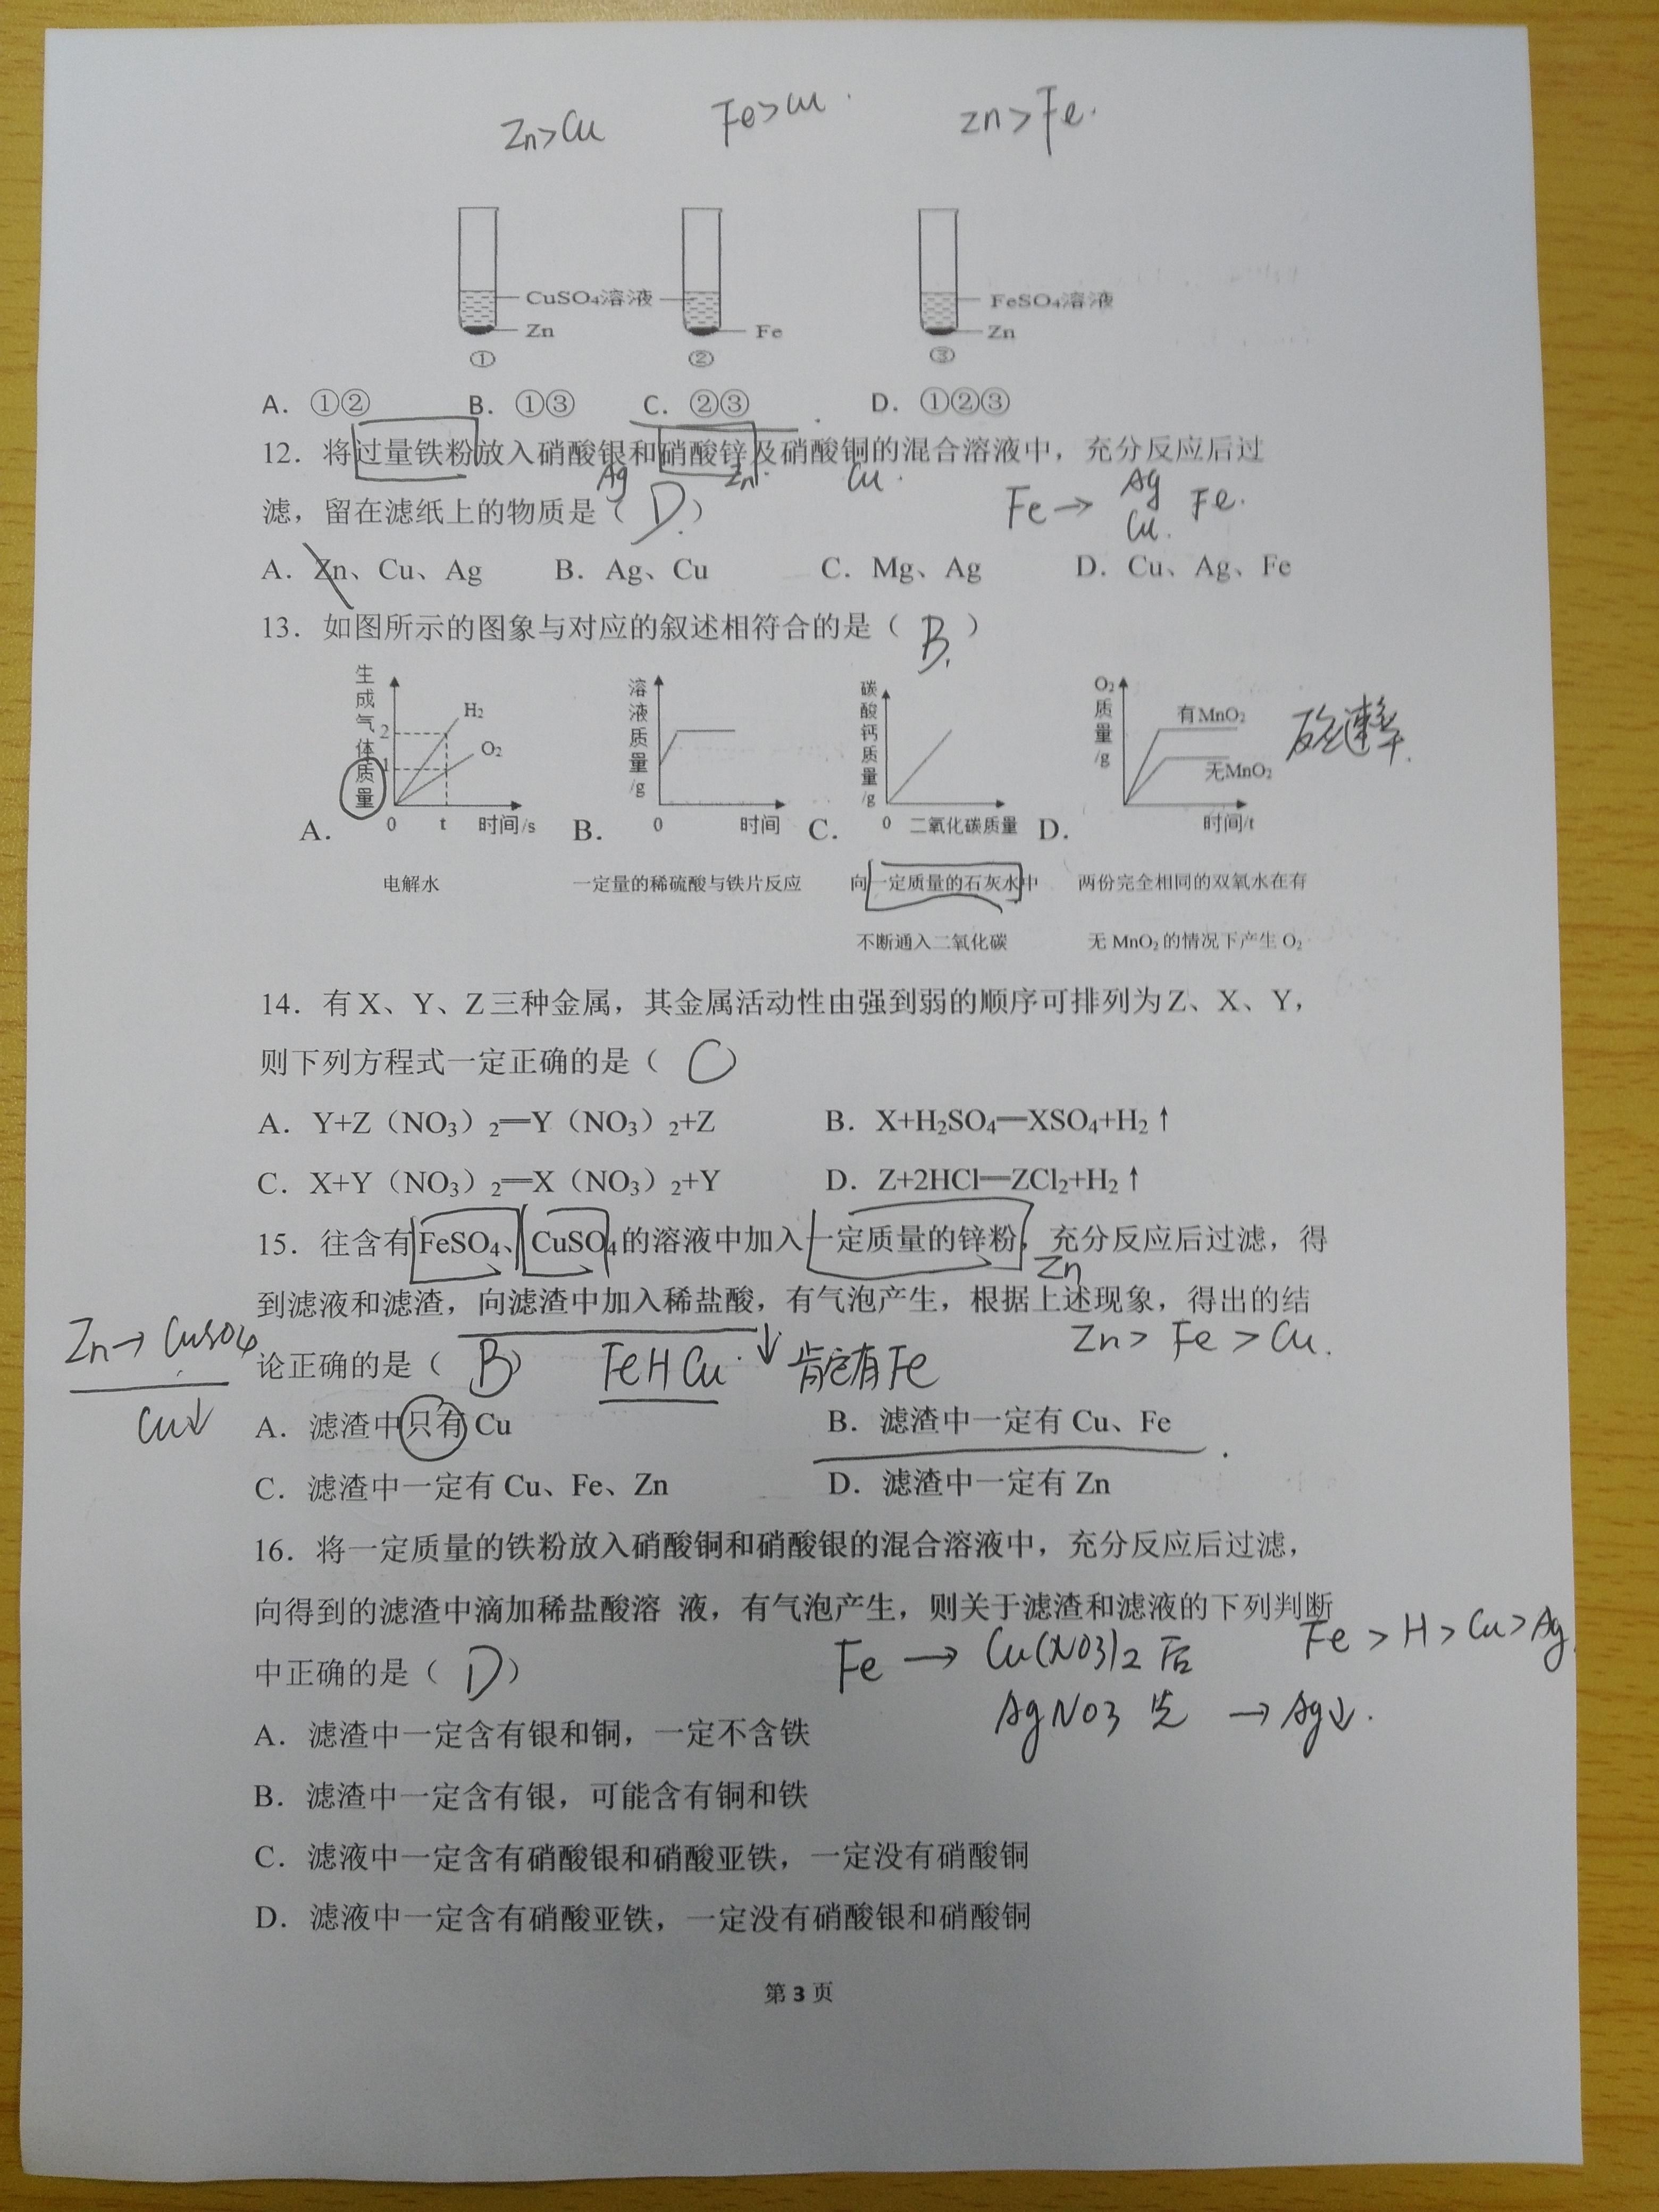 Zn>Cu Fe>Cu. Zn>Fe.
CuSO₄溶液 FeSO₄溶液
Zn Fe Zn
① ② ③
A. ①② B. ①③ C. ②③ D. ①②③
12. 将过量铁粉放入硝酸银和硝酸锌及硝酸铜的混合溶液中，充分反应后过
Ag Zn Cu.
滤，留在滤纸上的物质是（ D. ） Fe→ Ag Cu. Fe.
A. Zn、Cu、Ag B. Ag、Cu C. Mg、Ag D. Cu、Ag、Fe
13. 如图所示的图象与对应的叙述相符合的是（ B. ）
生成气体质量 2 1 H₂ O₂ 0 t 时间/s
溶液质量/g 0 时间
碳酸钙质量/g 0 二氧化碳质量
O₂质量/g 有MnO₂ 无MnO₂ 时间/t
反应速率.
A. B. C. D.
电解水 一定量的稀硫酸与铁片反应 向一定质量的石灰水中 两份完全相同的双氧水在有
不断通入二氧化碳 无 MnO₂ 的情况下产生 O₂
14. 有 X、Y、Z 三种金属，其金属活动性由强到弱的顺序可排列为 Z、X、Y，
则下列方程式一定正确的是（ C ）
A. Y+Z（NO₃）₂═Y（NO₃）₂+Z B. X+H₂SO₄═XSO₄+H₂↑
C. X+Y（NO₃）₂═X（NO₃）₂+Y D. Z+2HCl═ZCl₂+H₂↑
15. 往含有 FeSO₄、CuSO₄ 的溶液中加入一定质量的锌粉，充分反应后过滤，得
Zn
到滤液和滤渣，向滤渣中加入稀盐酸，有气泡产生，根据上述现象，得出的结
Zn→CuSO₄ Zn> Fe >Cu.
论正确的是（ B ） Fe H Cu. ↓ 肯定有Fe
Cu↓
A. 滤渣中只有 Cu B. 滤渣中一定有 Cu、Fe
C. 滤渣中一定有 Cu、Fe、Zn D. 滤渣中一定有 Zn
16. 将一定质量的铁粉放入硝酸铜和硝酸银的混合溶液中，充分反应后过滤，
向得到的滤渣中滴加稀盐酸溶 液，有气泡产生，则关于滤渣和滤液的下列判断
Fe → Cu(NO3)2 后 Fe > H > Cu > Ag.
中正确的是（ D ）
AgNO3 先 → Ag↓.
A. 滤渣中一定含有银和铜，一定不含铁
B. 滤渣中一定含有银，可能含有铜和铁
C. 滤液中一定含有硝酸银和硝酸亚铁，一定没有硝酸铜
D. 滤液中一定含有硝酸亚铁，一定没有硝酸银和硝酸铜
第 3 页